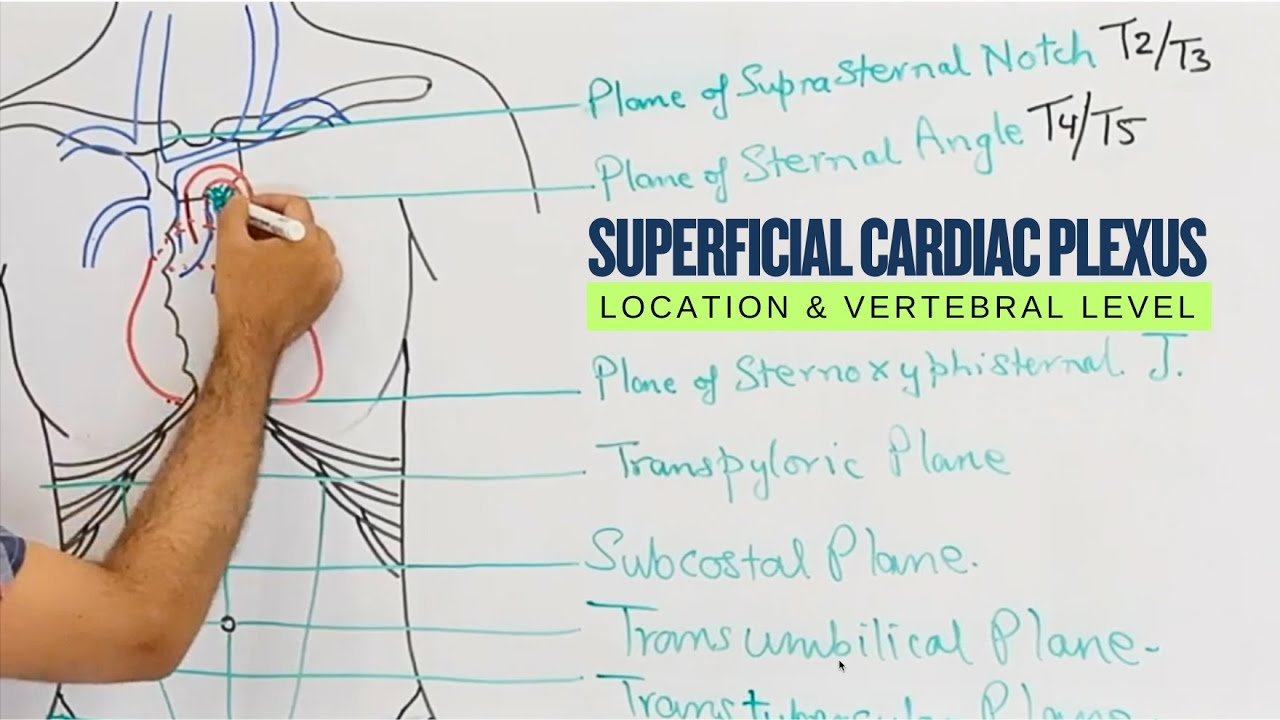 Plane of SupraSternal Notch T2/T3
Plane of Sternal Angle T4/T5
SUPERFICIAL CARDIAC PLEXUS
LOCATION & VERTEBRAL LEVEL
Plane of Sternoxyphisternal. J.
Transpyloric Plane
Subcostal Plane.
Transumbilical Plane-